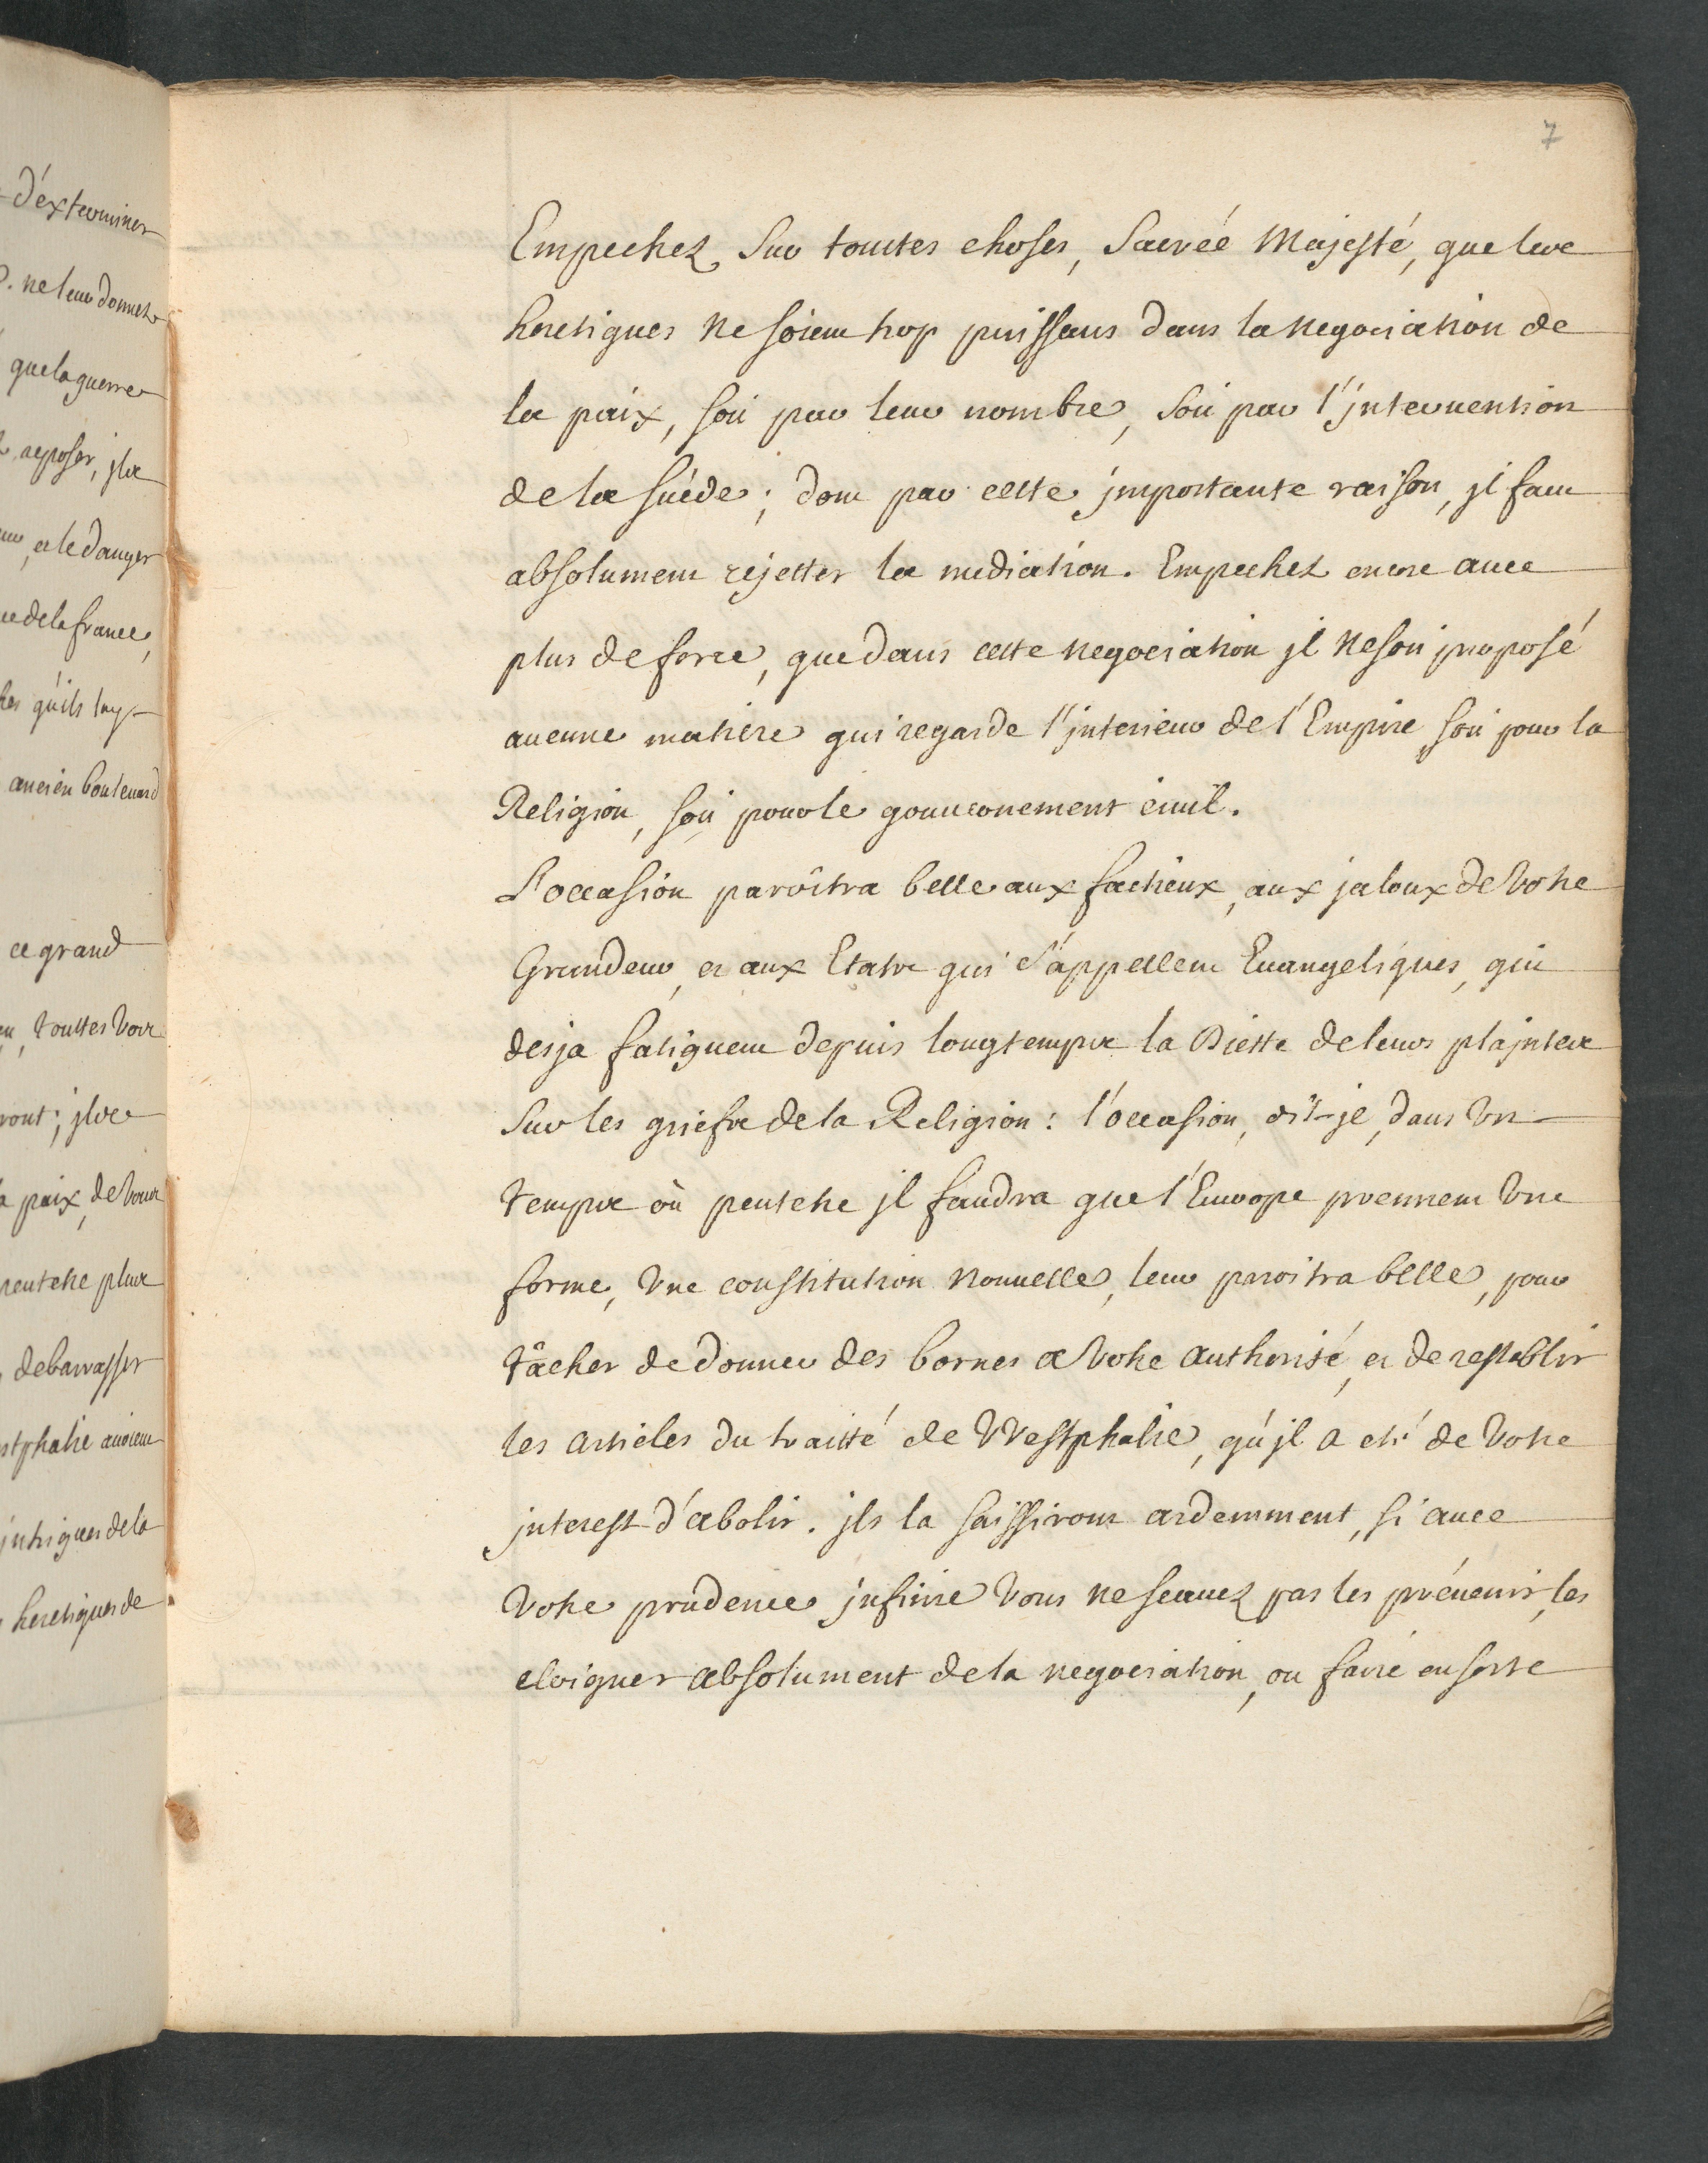 7
Empechez sur touttes choses, Sacrée Majesté, que les
heretiques ne soient trop puissans dans la negociation de
la paix, soit par leur nombre, soit par l'jntervention
de la Suéde; dont par cette jmportante raison, jl faut
absolument rejetter la mediation. Empechez encore avec
plus de force, que dans cette negociation jl ne soit proposé
aucune matiere qui regarde l'jnterieur de l'Empire soit pour la
Religion, soit pour le gouvernement civil.
L'occasion paroîtra belle aux factieux, aux jaloux de Votre
Grandeur, et aux Etats qui s'appellent Evangeliques, qui
desja fatiguent depuis longtemps la Diette de leurs plajntes
sur les griefs de la Religion: l'occasion, dis-je, dans Un
temps où peutetre jl faudra que l'Europe prennent Une
forme, Vne constitution nouvelle, leur paroitra belle, pour
tâcher de donner des bornes a Votre authorité, et de restablir
les articles du traitté de VVestphalie, qu'jl a eté de Votre
jnterest d'abolir. jls la saissiront ardemment, si avec
Votre prudence jnfinie Vous ne scavez pas les prévenir, les
eloigner absolument de la negociation, ou faire en sorte
d'exterminer
ne leur donnez
que la guerre
reposer, jls
et le danger
de la france,
qu'ils luy
ancien boulevard
ce grand
touttes Vos
ront; jls
paix, de Vous
peutetre plus
debarrasser
stphalie avoient
jntrigues de la
heretiques de